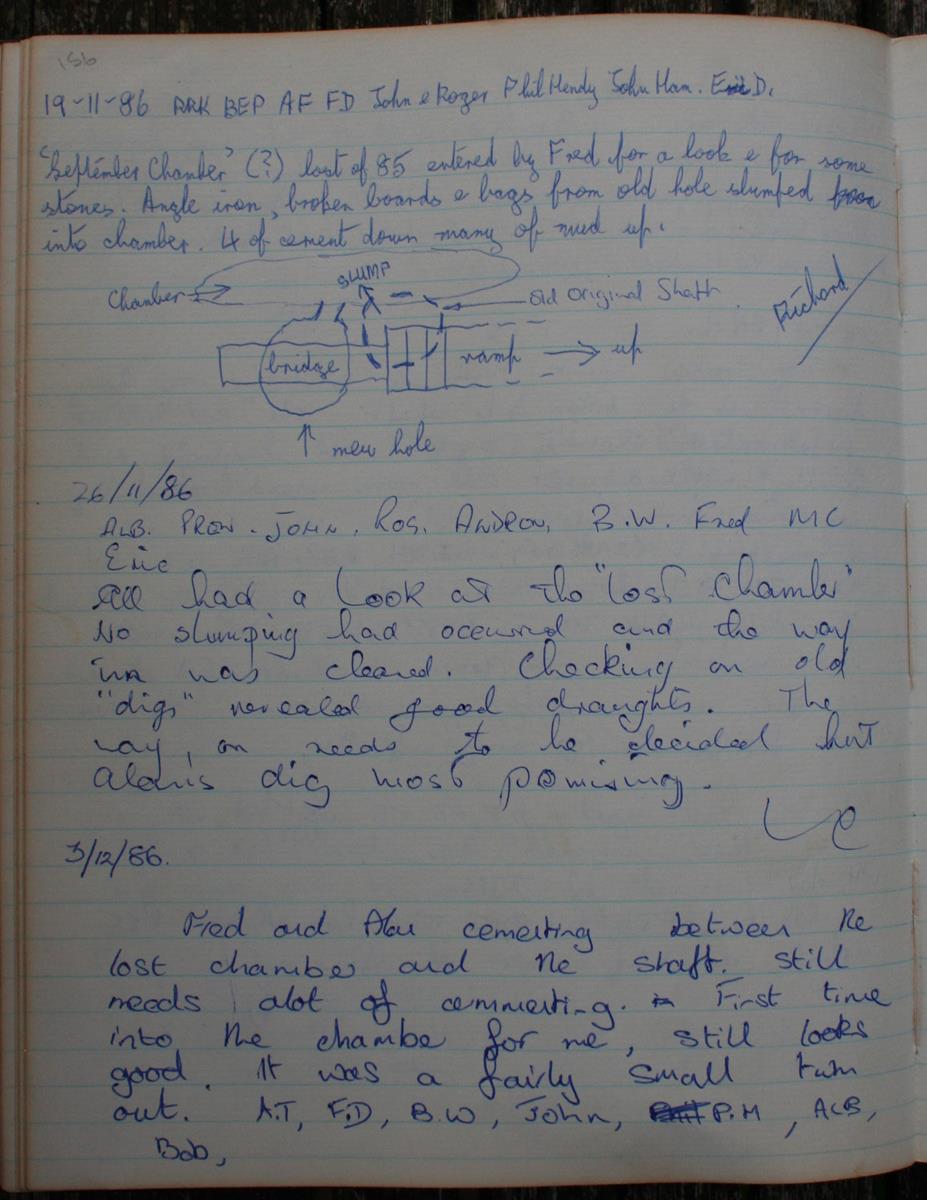 156
19-11-86 ARK BEP AF FD John & Roger Phil Hendy John Ham. Eric D.
"September Chamber" (?) last of 85 entered by Fred for a look & for some
stones. Angle iron, broken boards & bags from old hole slumped
into chamber. 4 of cement down many of mud up.
SLUMP
Chamber
old original Shaft
Richard
bridge
ramp
up
new hole
26/11/86
ALB. PROW. JOHN, ROG, ANDREW, B.W. Fred MC
Eric
All had a look at the "lost chamber"
No slumping had occurred and the way
in was cleared. Checking on old
"digs" revealed good draughts. The
way, on needs to be decided but
Alan's dig most pomising.
3/12/86.
Fred and Alan cementing between the
lost chamber and the shaft. still
needs alot of cemmenting. First time
into the chamber for me, still looks
good. It was a fairly small turn
out. A.T, F.D, B.W, John, P.H, ALB,
Bob,